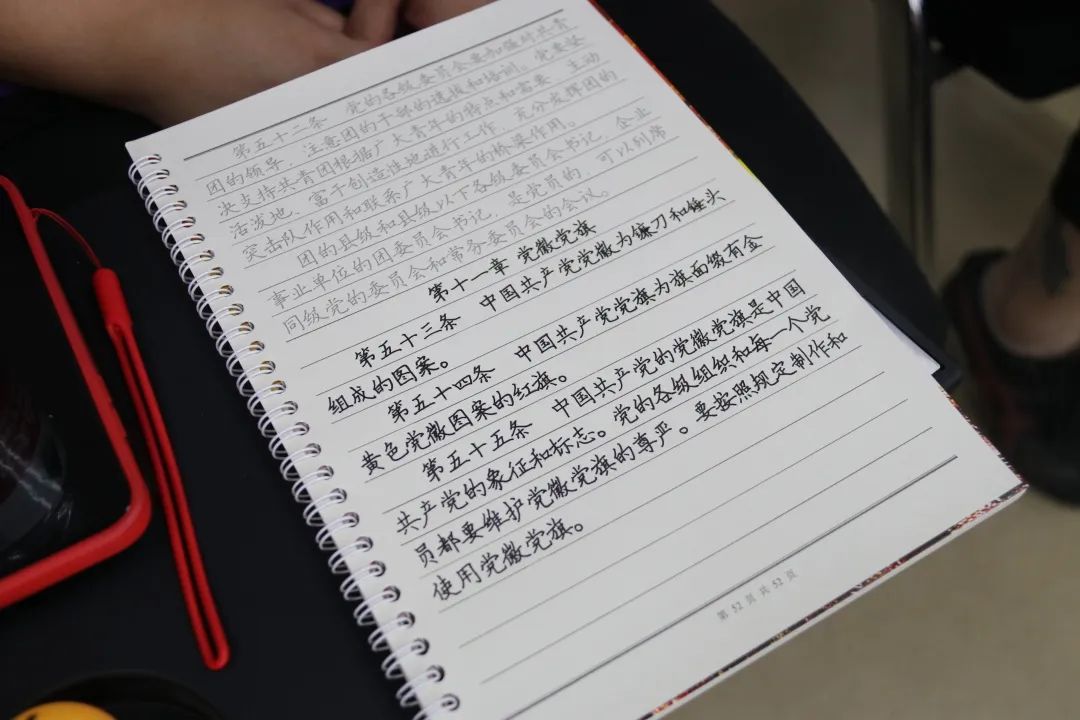 第五十二条 党的各级委员会要加强对共青
团的领导，注意团的干部的选拔和培训。党要坚
决支持共青团根据广大青年的特点和需要，主动
活泼地、富于创造性地进行工作，充分发挥团的
突击队作用和联系广大青年的桥梁作用。
团的县级和县级以下各级委员会书记，企业
事业单位的团委员会书记，是党员的，可以列席
同级党的委员会和常务委员会的会议。
第十一章 党徽党旗
第五十三条 中国共产党党徽为镰刀和锤头
组成的图案。
第五十四条 中国共产党党旗为旗面缀有金
黄色党徽图案的红旗。
第五十五条 中国共产党的党徽党旗是中国
共产党的象征和标志。党的各级组织和每一个党
员都要维护党徽党旗的尊严。要按照规定制作和
使用党徽党旗。
第 52 页 共 52 页